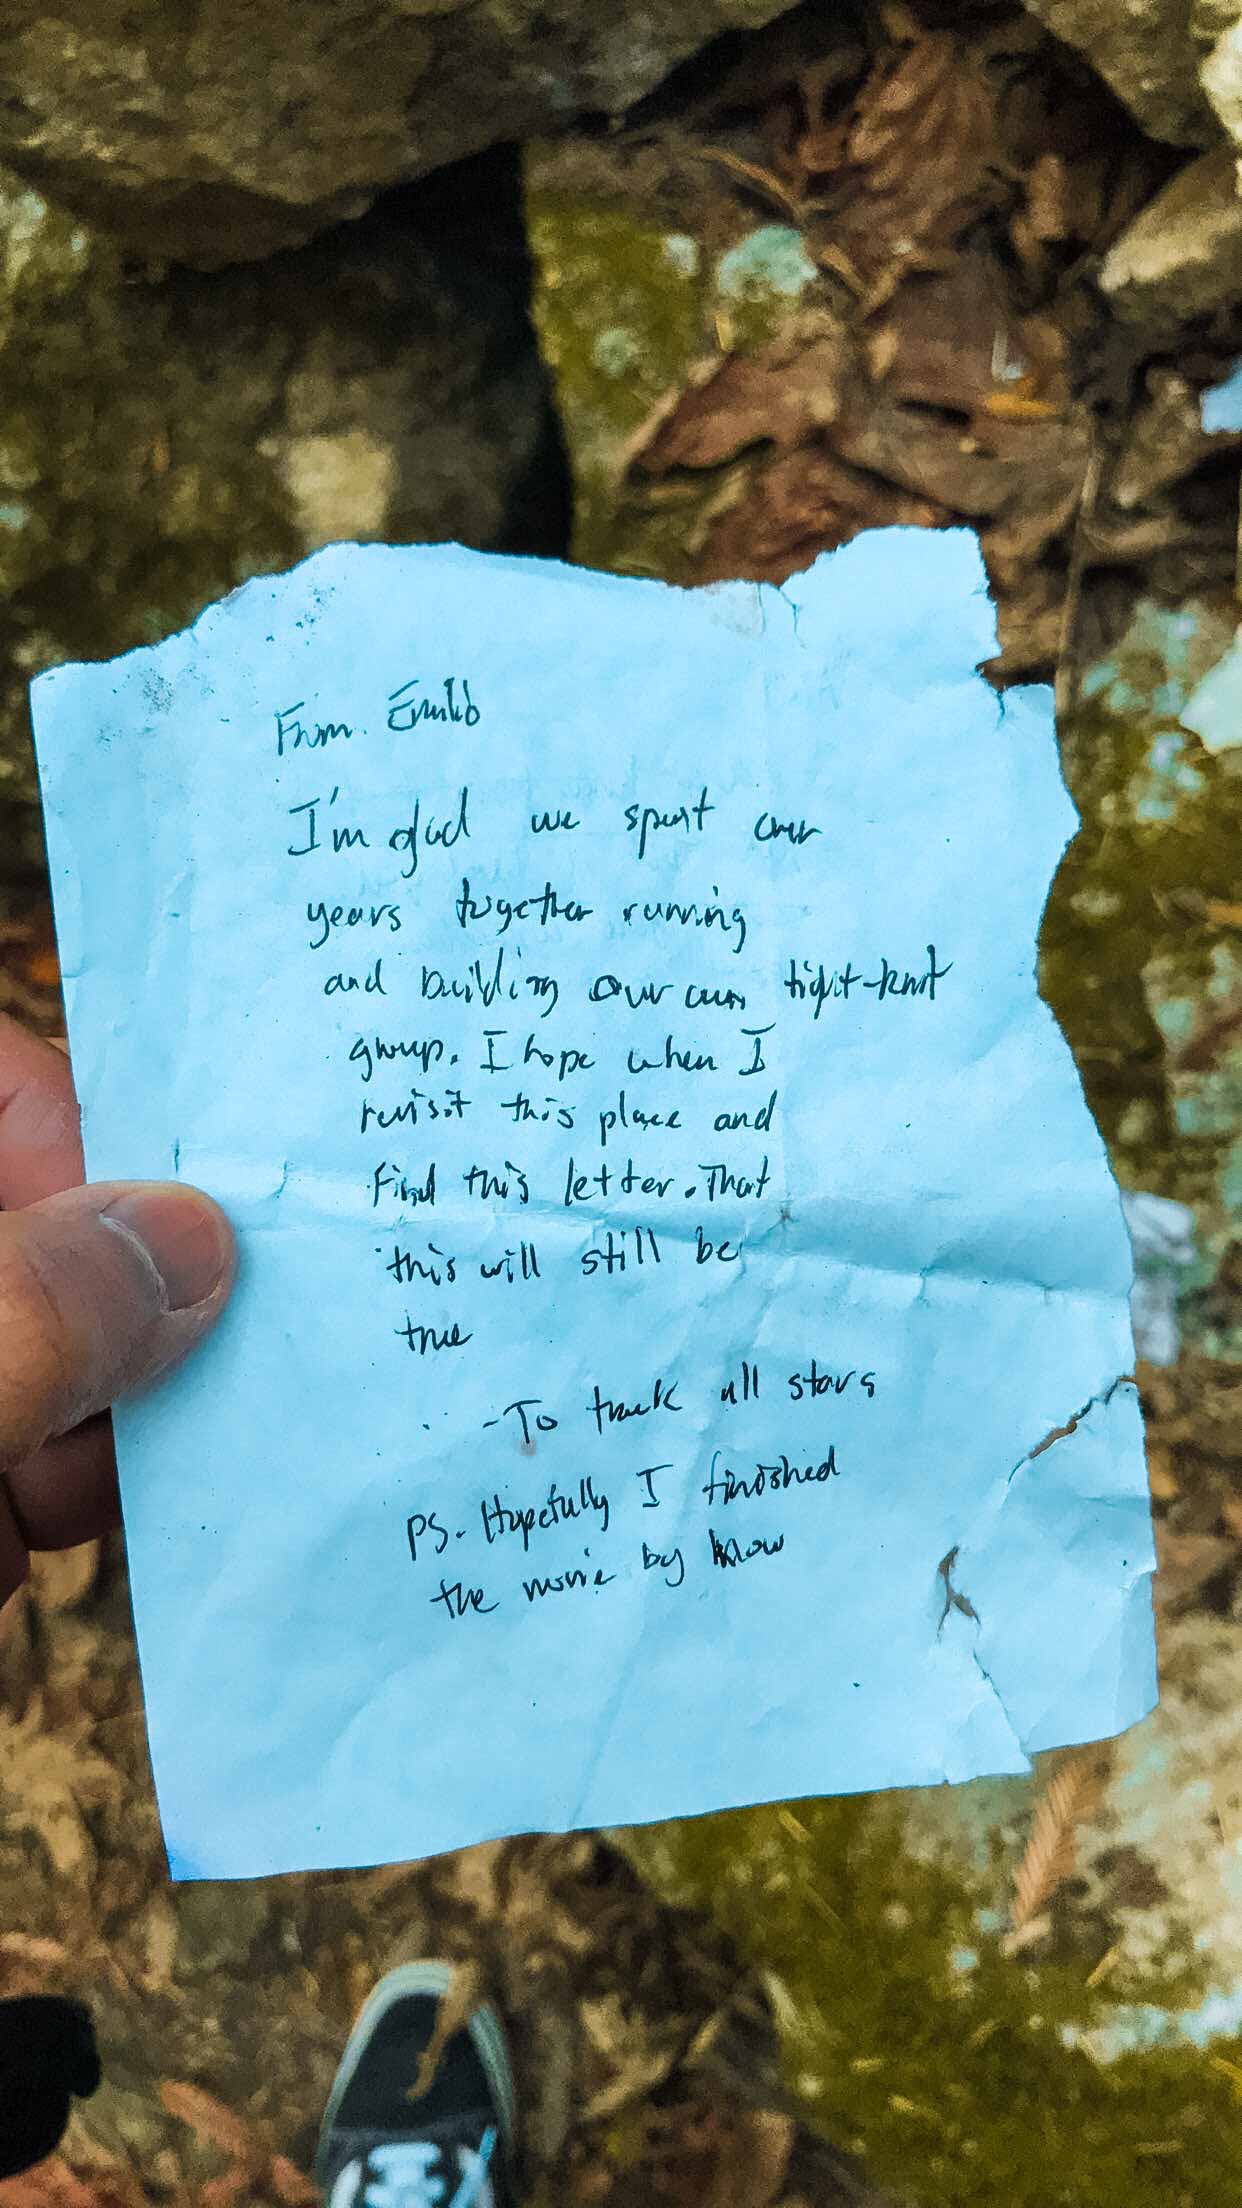 From. Emilio
I'm glad we spent our
years together running
and building our own tight-knit
group. I hope when I
revisit this place and
find this letter. That
this will still be
true
-To track all stars
PS. Hopefully I finished
the movie by know